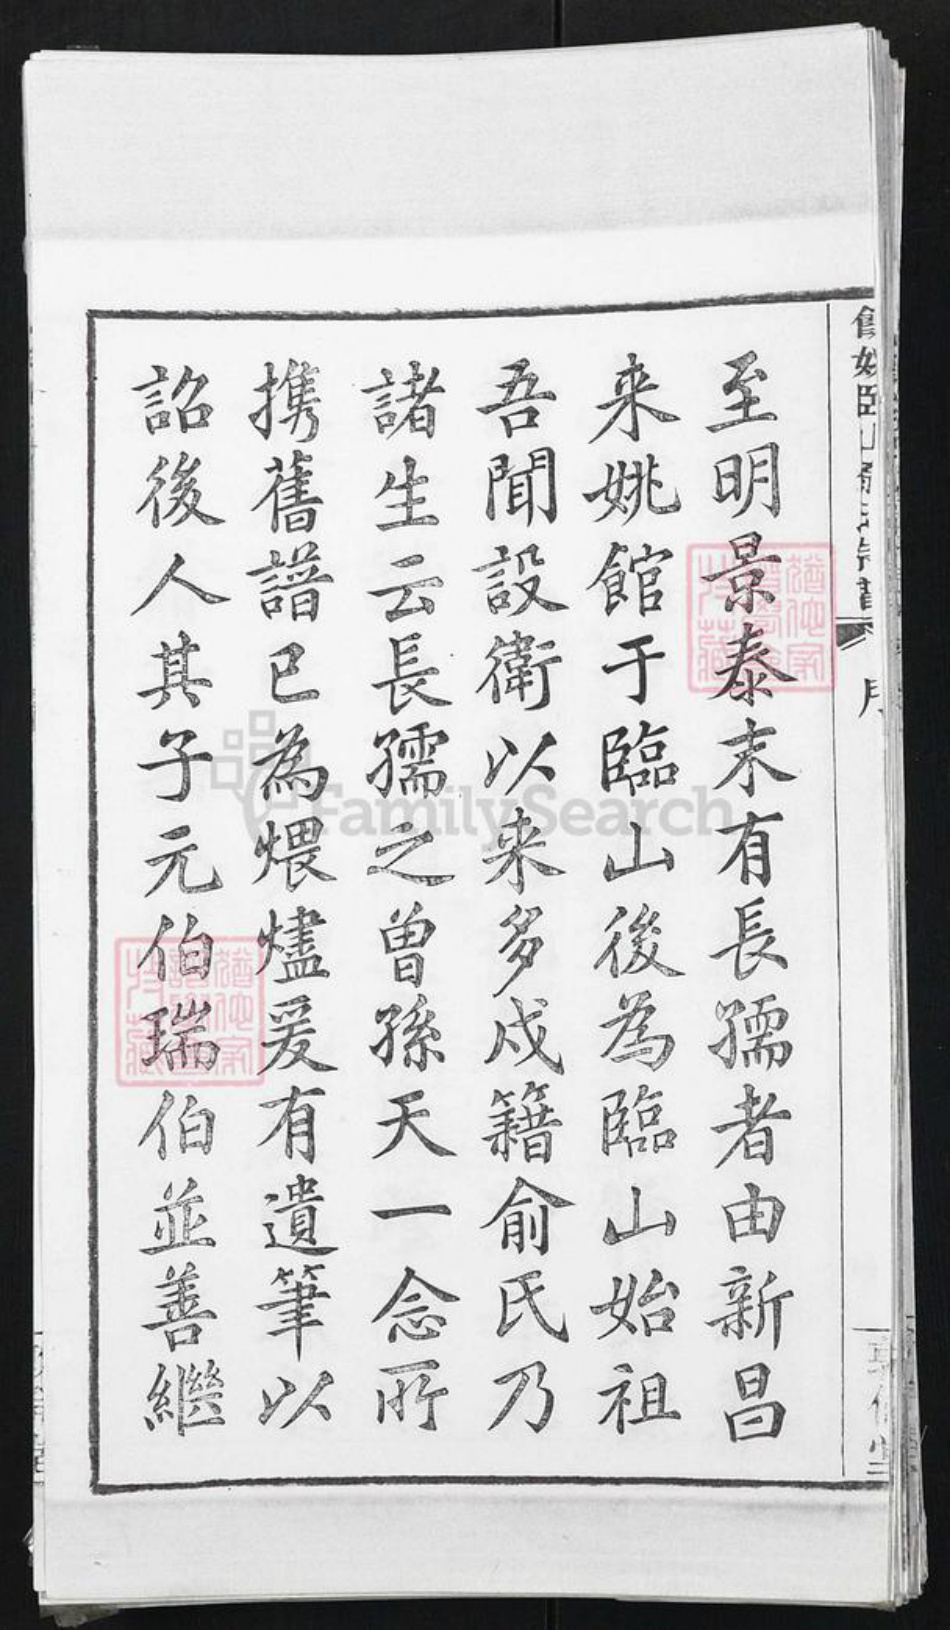 至明景泰末有長孺者由新昌
来姚館于臨山後為臨山始祖
吾聞設衛以来多戍籍俞氏乃
諸生云長孺之曾孫天一念所
携舊譜已為煨燼爰有遺筆以
詔後人其子元伯瑞伯並善繼
FamilySearch